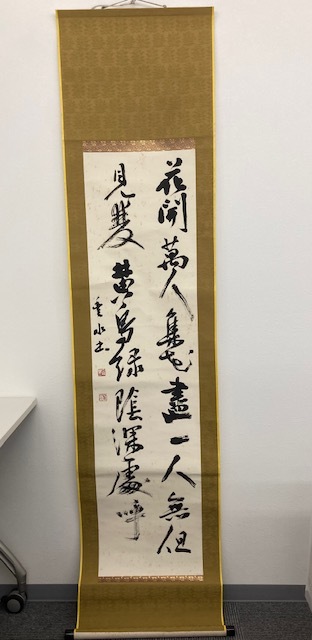 花開萬人集花盡一人無但
見雙黄鳥緑陰深處呼